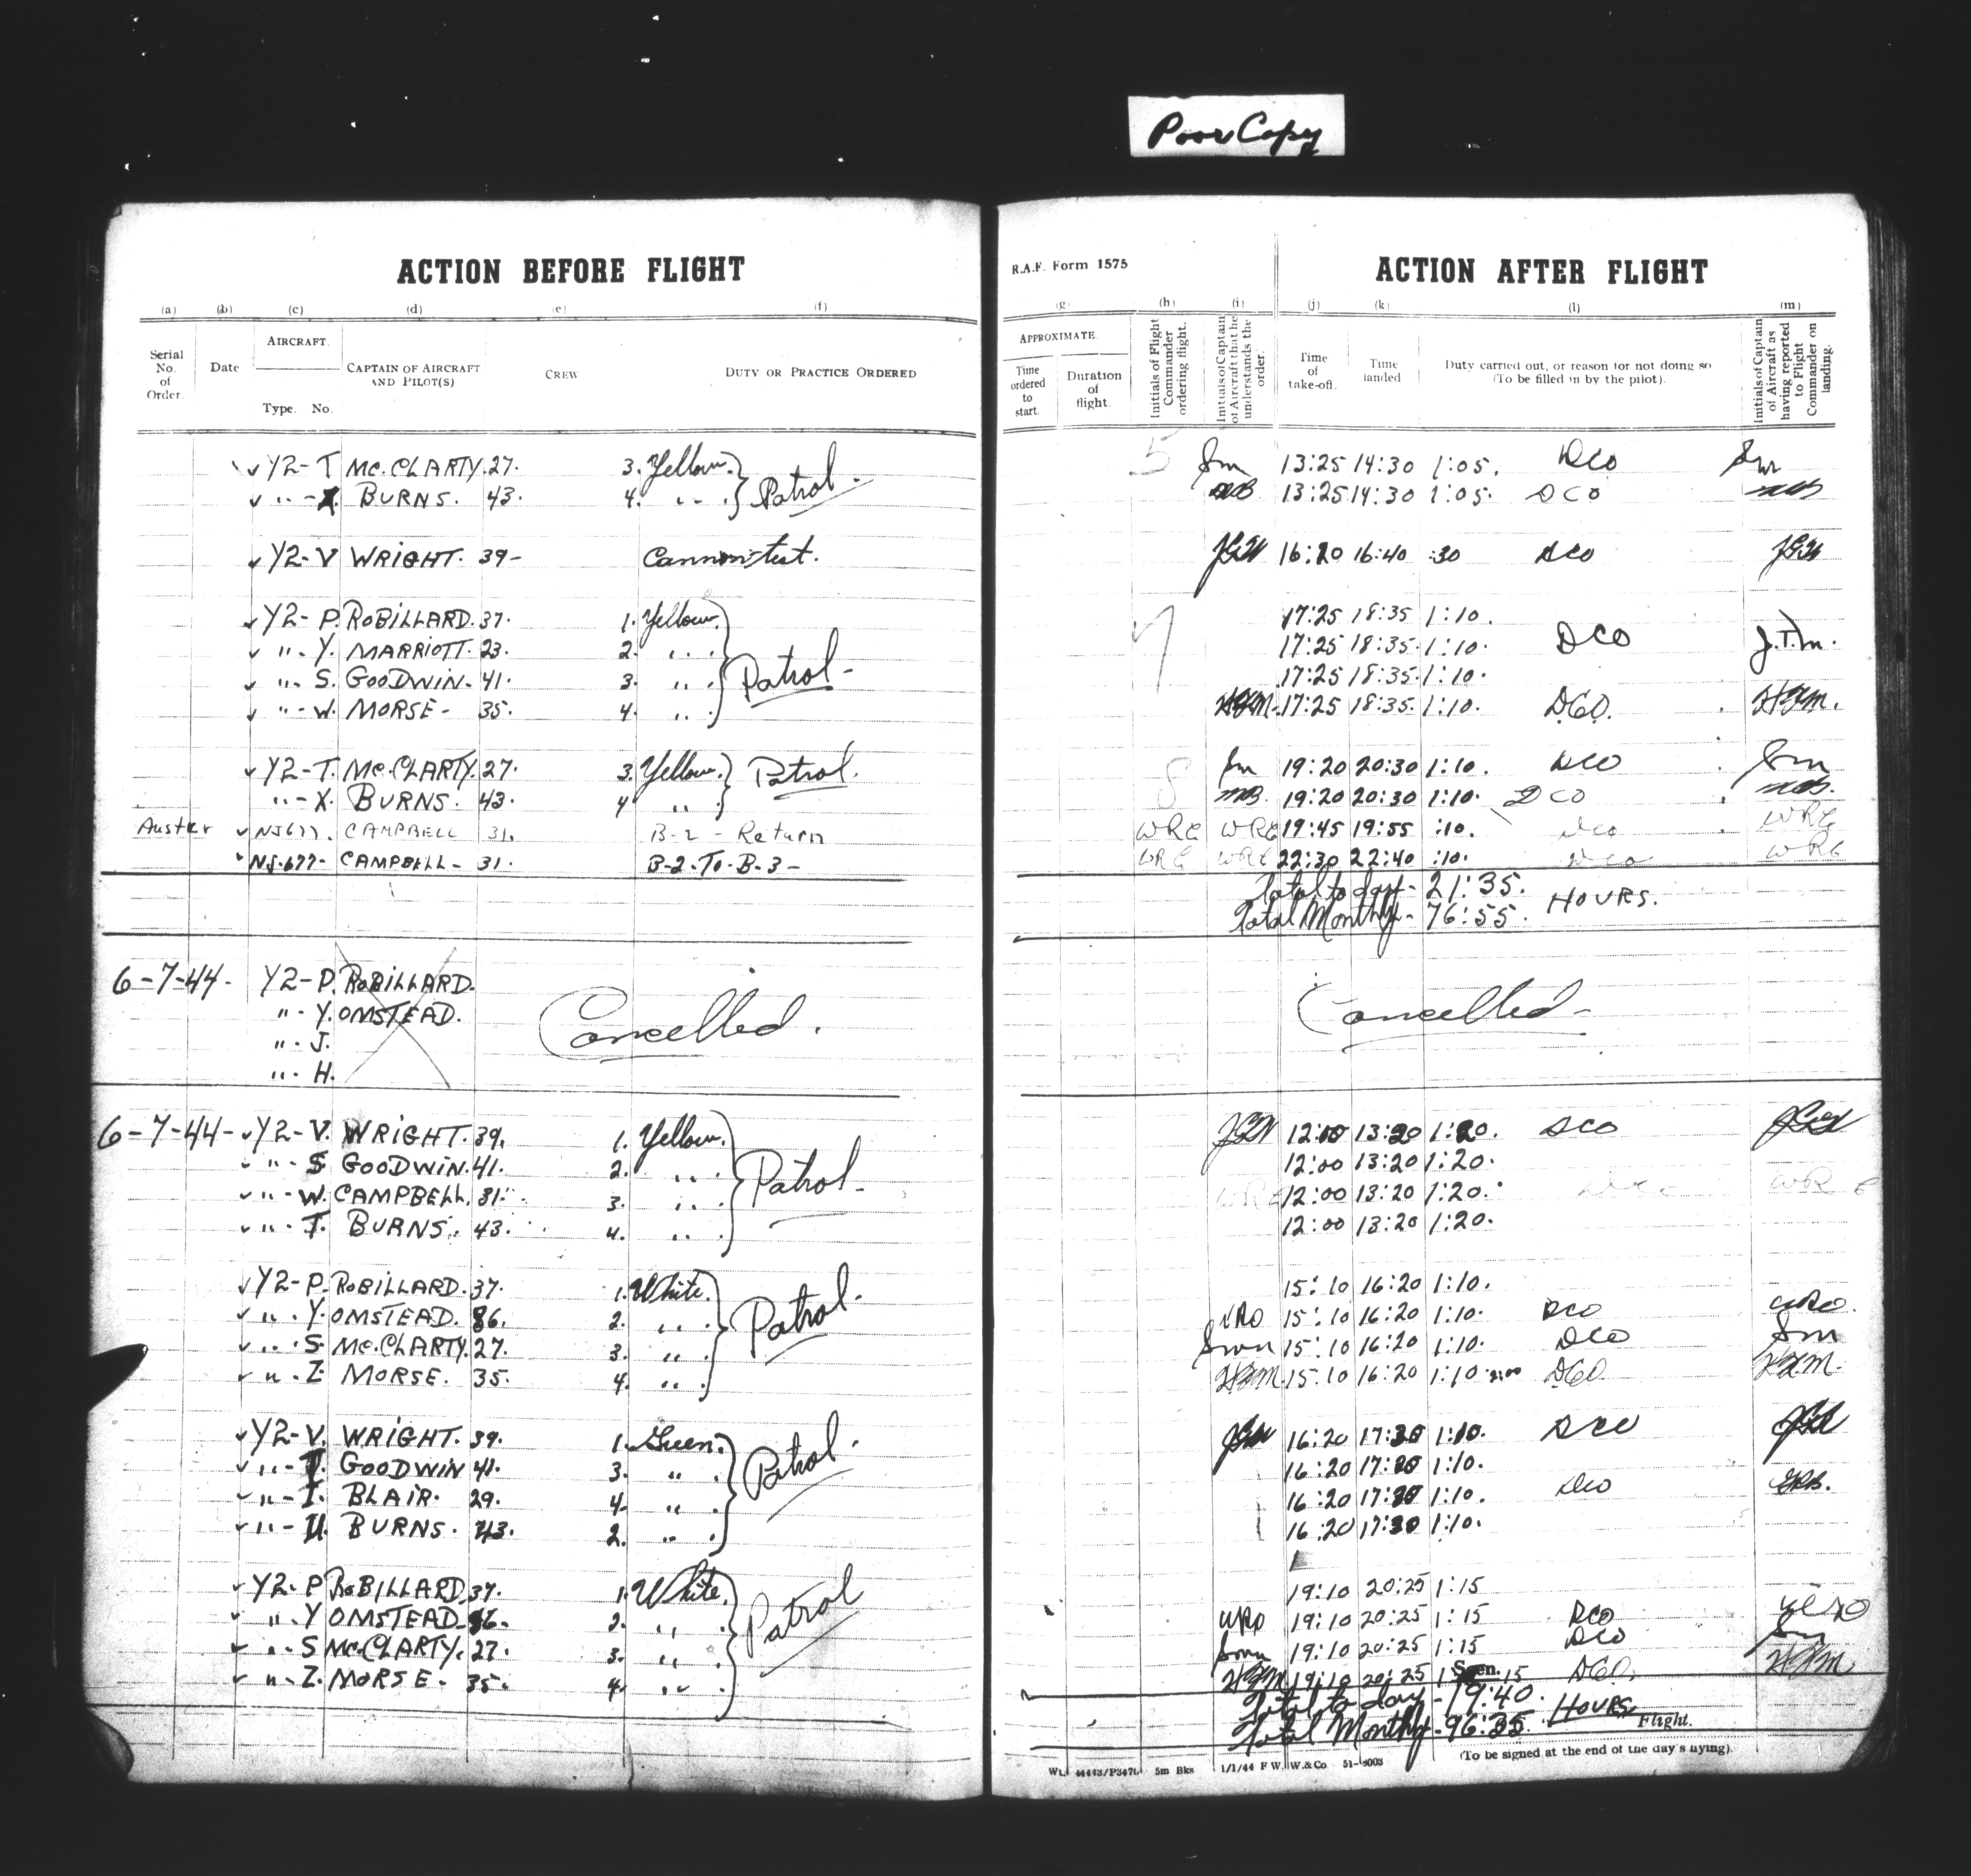 Poor Copy
ACTION BEFORE FLIGHT
(a) (b) (c) (d) (e) (f)
Serial No. of Order.
Date
AIRCRAFT.
Type. No.
CAPTAIN OF AIRCRAFT AND PILOT(S)
CREW
DUTY OR PRACTICE ORDERED
✓ Y2-T MC.CLARTY. 27. 3. Yellow. } Patrol.
✓ "-X. BURNS. 43. 4. " . }
✓ Y2-V WRIGHT. 39- Cannon test.
✓ Y2-P. ROBILLARD. 37. 1. Yellow. } Patrol-
✓ "-Y. MARRIOTT. 23. 2. " .
✓ "-S. GOODWIN. 41. 3. " .
✓ "-W. MORSE- 35. 4. " .
✓ Y2-T. MC.CLARTY. 27. 3. Yellow. } Patrol.
"-X. BURNS. 43. 4 "
Auster ✓ NJ677. CAMPBELL 31. B-2 - Return
✓ NJ-677- CAMPBELL- 31. B-2-To-B-3-
6-7-44- Y2-P. ROBILLARD. Cancelled.
"-Y. OMSTEAD.
"-J.
"-H.
6-7-44- ✓ Y2-V. WRIGHT. 39. 1. Yellow. } Patrol-
✓ "-S GOODWIN. 41. 2. " .
✓ "-W. CAMPBELL. 31. 3. " .
✓ "-T. BURNS. 43. 4. " .
✓ Y2-P. ROBILLARD. 37. 1. White. } Patrol.
✓ "-Y. OMSTEAD. 86. 2. " .
✓ "-S. MC.CLARTY. 27. 3. " .
✓ "-Z MORSE. 35. 4. " .
✓ Y2-V. WRIGHT. 39. 1. Green. } Patrol.
✓ "- GOODWIN 41. 3. " .
✓ "-I. BLAIR. 29. 4. " .
✓ "-U. BURNS. 43. 2. " .
✓ Y2-P ROBILLARD 37. 1. White. } Patrol
✓ "-Y OMSTEAD- 86. 2. " .
✓ "-S MC.CLARTY. 27. 3. " .
✓ "-Z. MORSE. 35. 4. " .
R.A.F. Form 1575
ACTION AFTER FLIGHT
(g) (h) (i) (j) (k) (l) (m)
APPROXIMATE.
Time ordered to start.
Duration of flight.
Initials of Flight Commander ordering flight.
Initials of Captain of Aircraft that he understands the order.
Time of take-off.
Time landed
Duty carried out, or reason for not doing so (To be filled in by the pilot).
Initials of Captain of Aircraft as having reported to Flight Commander on landing.
5 Sm 13:25 14:30 1:05. DCO Sm
13:25 14:30 1:05. DCO
16:20 16:40 :30 DCO
7 17:25 18:35 1:10.
17:25 18:35. 1:10. DCO J.T.M.
17:25 18:35. 1:10.
17:25 18:35. 1:10. DCO.
8 Sm 19:20 20:30 1:10. DCO Sm
19:20 20:30 1:10. DCO
WRC WRC 19:45 19:55 :10. DCO WRC
WRC WRC 22:30 22:40 :10. DCO WRC
Total to day- 21:35. HOURS.
Total Monthly- 76:55.
Cancelled-
12:00 13:20 1:20. DCO
12:00 13:20 1:20.
WRC 12:00 13:20 1:20. DCO WRC
12:00 13:20 1:20.
15:10 16:20 1:10.
WRO 15:10 16:20 1:10. DCO WRO.
Smm 15:10 16:20 1:10. DCO Sm
15:10 16:20 1:10 DCO.
16:20 17:30 1:10. DCO
16:20 17:30 1:10.
16:20 17:30 1:10. DCO
16:20 17:30 1:10.
19:10 20:25 1:15
WRO 19:10 20:25 1:15 DCO WRO
Smm 19:10 20:25 1:15 DCO Sm
19:10 20:25 1:15 DCO.
Seen.
Total to day - 19:40. HOURS
Total Monthly- 96:35. Flight.
(To be signed at the end of the day's flying).
Wt. 44443/P3476 5m Bks 1/1/44 F.W.W.&Co. 51-5003